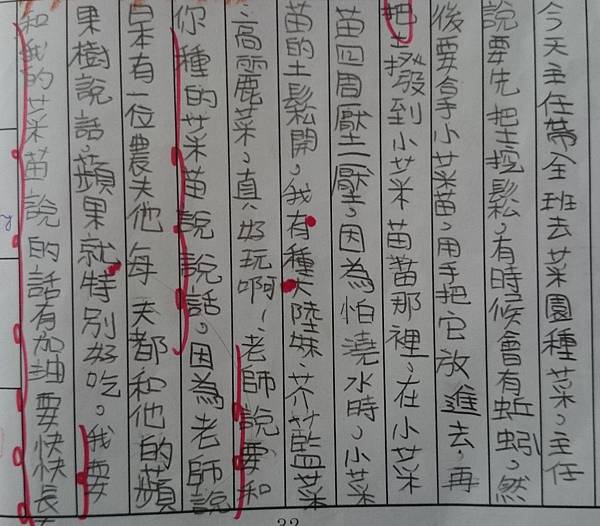 今天主任帶全班去菜園種菜。主任
說要先把土挖鬆。有時候會有蚯蚓。然
後要拿小菜苗。用手把它放進去,再
把土撥到小菜苗苗那裡。在小菜
苗四周壓一壓。因為怕澆水時,小菜
苗的土鬆開。我有種大陸妹、芥藍菜
、高麗菜。真好玩啊!老師說要和
你種的菜苗說說話。因為老師說
日本有一位農夫他每天都和他的蘋
果樹說話。蘋果就特別好吃。我要
和我的菜苗說的話有加油要快快長
22